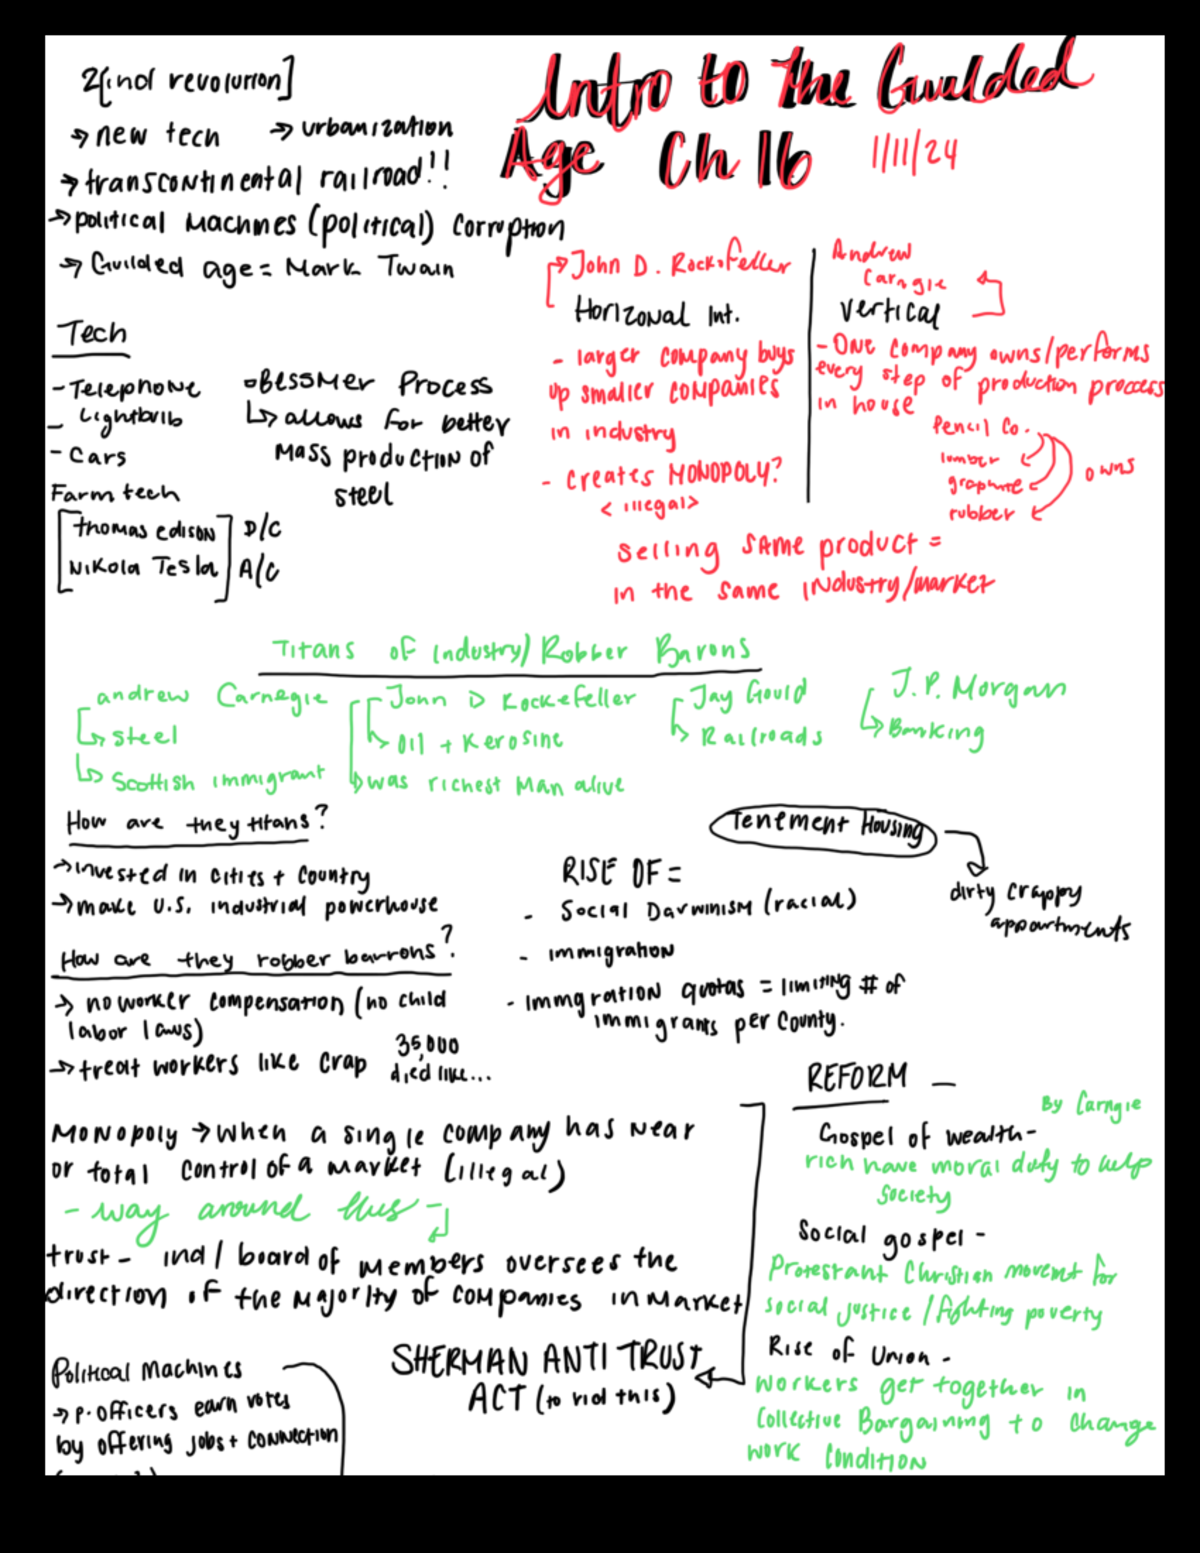 2[ind revolution]
→ new tech → urbanization
→ transcontinental railroad!!
→ political Machines (political) corruption
→ Guilded age = Mark Twain
Intro to The Guilded
Age Ch 16 1/11/24
Tech
- Telephone
- Lightbulb
- Cars
Farm tech
[Thomas Edison] D/C
[Nikola Tesla] A/C
Bessmer Process
↳ allows for better
Mass production of
steel
→ John D. Rockefeller
Horizonal Int.
- larger company buys
up smaller companies
in industry
- creates MONOPOLY?
< illegal>
Andrew
Carngie
vertical
- One company owns/performs
every step of production process
in house
Pencil Co.
lumber
graphite
rubber
owns
selling SAME product =
in the same industry/market
Titans of Industry/Robber Barons
andrew Carnegie
↳ steel
↳ Scottish immigrant
John D Rockefeller
↳ Oil + Kerosine
↳ was richest Man alive
Jay Gould
↳ Railroads
J.P. Morgan
↳ Banking
How are they titans?
→ invested in cities + country
→ make U.S. industrial powerhouse
How are they robber barrons?
→ no worker compensation (no child
labor laws)
→ treat workers like crap 35,000
died like...
Tenement Housing
dirty crappy
appartments
RISE OF =
- Social Darwinism (racial)
- immigration
- Immgration quotas = limiting # of
immigrants per County.
Monopoly → when a single company has near
or total control of a market (illegal)
- way around this -
trust - ind / board of members oversees the
direction of the majority of companies in market
SHERMAN ANTI TRUST
ACT (to rid this)
Political Machines
→ p. officers earn votes
by offering jobs + connection
REFORM -
By Carngie
Gospel of wealth -
rich have moral duty to help
society
Social gospel -
Protestant Christian movemt for
social justice / fighting poverty
Rise of Union -
workers get together in
Collective Bargaining to change
work condition